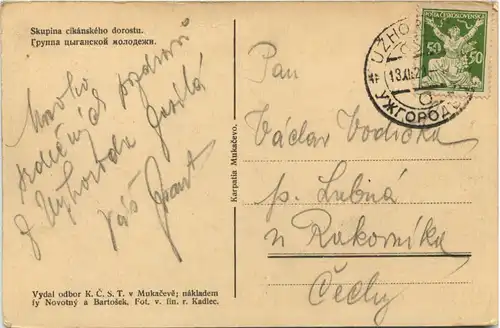 Skupina cikánského dorostu.
Группа цыганской молодежи.
Mnoho
srdečných pozdravů
z Užhorodu posílá
Váš
Vydal odbor K. Č. S. T. v Mukačevě; nákladem
fy Novotný a Bartošek. Fot. v. fin. r. Kadlec.
Karpatia Mukačevo.
POŠTA ČESKOSLOVENSKÁ
50 50
UŽHO
13.XI.2
УЖГОРОДЪ
Pan
Václav Vodička
p. Lubná
u Rakovníka
Čechy